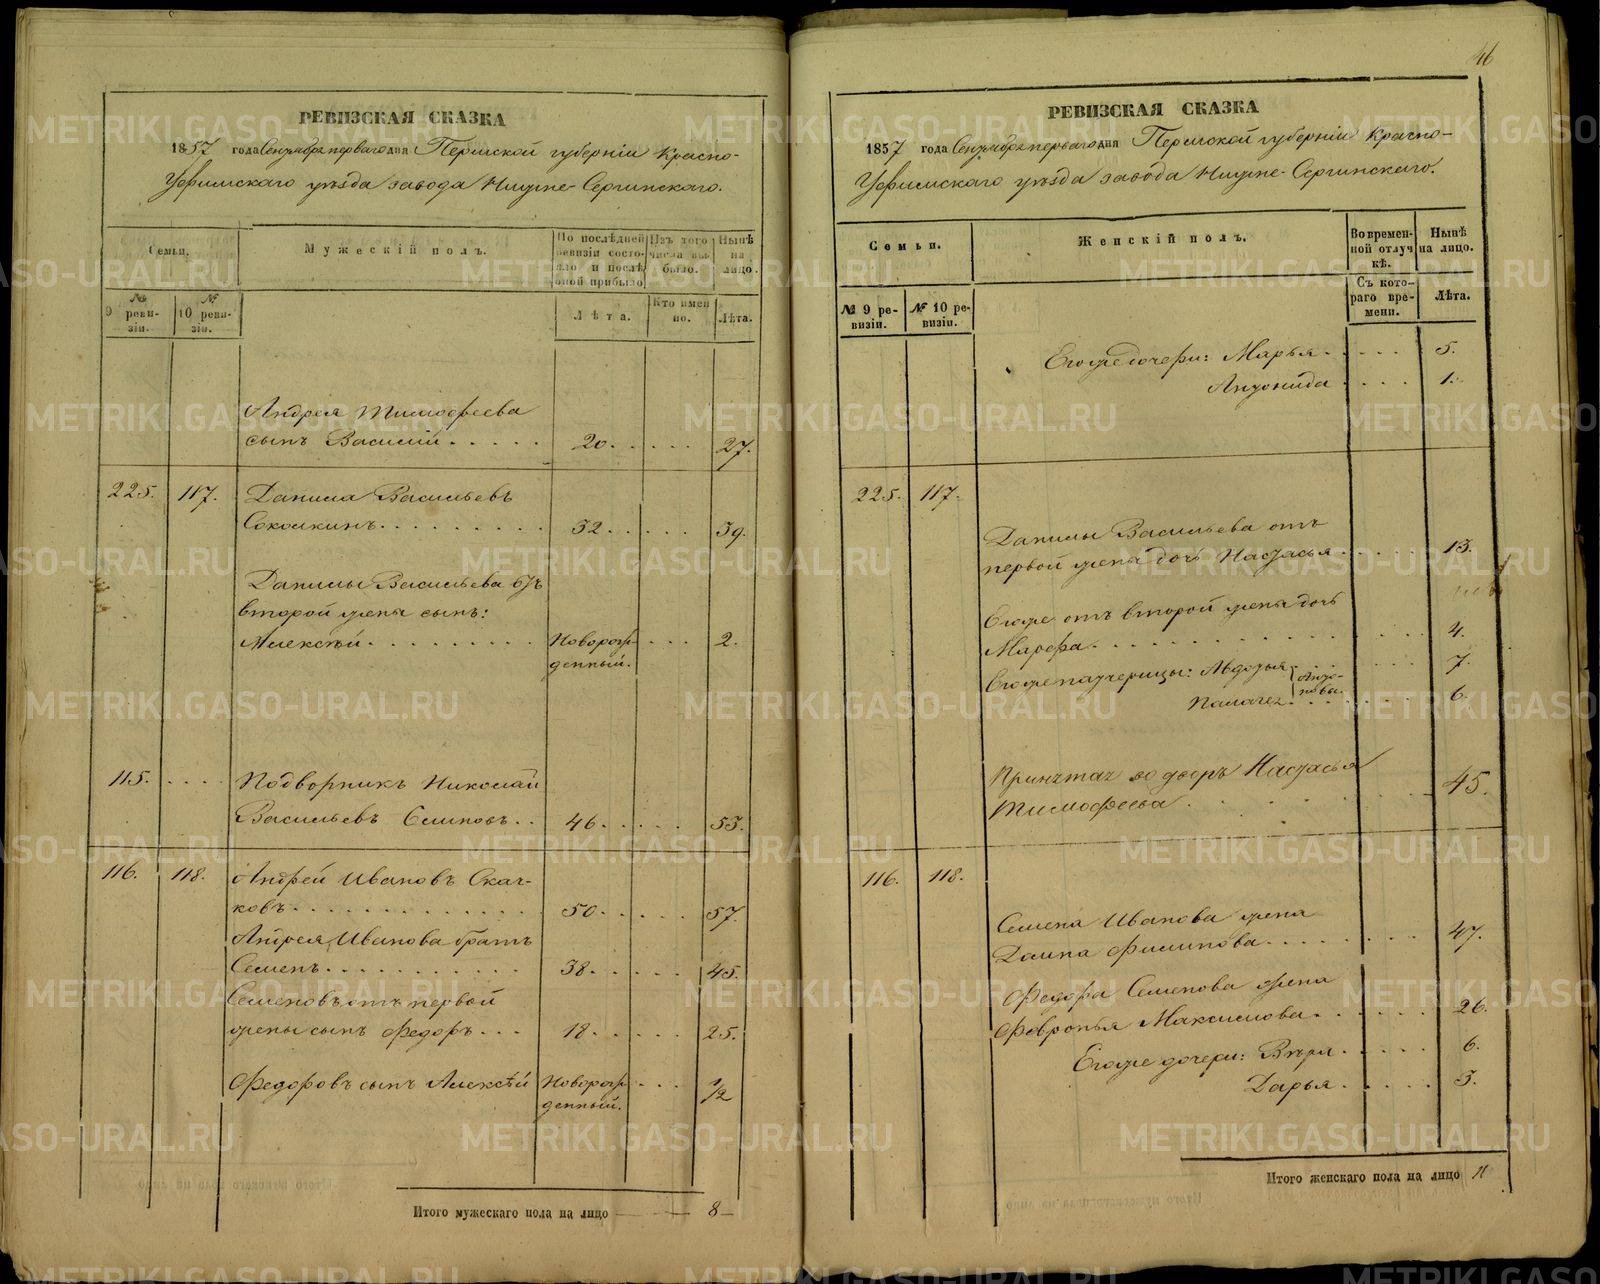 46
РЕВИЗСКАЯ СКАЗКА
1857 года Сентября перваго дня Пермской губерніи Красно-
Уфимскаго уѣзда завода Нижне-Сергинскаго.
Семьи.
Мужескій полъ.
По послѣдней ревизіи состояло и послѣ оной прибыло
Изъ того числа выбыло.
Нынѣ на лицо.
№ 9 ревизіи.
№ 10 ревизіи.
Лѣта.
Кто именно.
Лѣта.
Андрея Тимофеева
сынъ Василій . . . . . 20. . . . . 27.
225. 117. Данила Васильевъ
Соколкинъ . . . . . . . . . 32. . . . . 39.
Данилы Васильева
второй жены сынъ:
Алексѣй . . . . . . . . . Новорож- . . . 2.
денный.
115. . . . . Подворникъ Николай
Васильевъ . . 46. . . . . 53.
116. 118. Андрей Ивановъ Скач-
ковъ . . . . . . . . . . . . . 50. . . . . 57.
Андрея Иванова братъ
Семенъ . . . . . . . . . . . 38. . . . . 45.
Семеновъ отъ первой
жены сынъ Федоръ . . . 18. . . . . 25.
Федоровъ сынъ Алексѣй Новорож- . . . 1/2
денный.
Итого мужескаго пола на лицо 8
РЕВИЗСКАЯ СКАЗКА
1857 года Сентября перваго дня Пермской губерніи Красно-
Уфимскаго уѣзда завода Нижне-Сергинскаго.
Семьи.
Женскій полъ.
Во временной отлучкѣ.
Нынѣ на лицо.
№ 9 ревизіи.
№ 10 ревизіи.
Съ котораго времени.
Лѣта.
Егоже дочери: Марья . . . . . 5.
Антонида . . . . 1.
225. 117.
Данилы Васильева отъ
первой жены дочь Настасья . . . . . . 13.
Егоже отъ второй жены дочь
Марфа . . . . . . . . . . . . 4.
Егоже падчерицы: Авдотья . . . . . . 7.
Анто-
нова.
Палагея . . . . . . . 6.
во дворъ Настасья
Тимофеева . . . . . . . 45.
116. 118.
Семена Иванова жена
Домна Филипова . . . . . . . . 47.
Федора Семенова жена
Февронья Максимова . . . . . . 26.
Егоже дочери: Вѣра . . . . . 6.
Дарья . . . . . 3.
Итого женскаго пола на лицо 11
METRIKI.GASO-URAL.RU